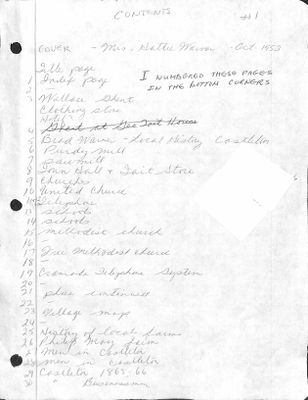 CONTENTS
#1
COVER - Mrs. Hattie Mason - Oct 1953
Title page
1 Index page
2 -
I NUMBERED THESE PAGES
IN THE BOTTOM CORNERS
3 Wallace Shent
Clothing store
Hotel
4 Shed at Geo Tait House
5 Brad Warner - Local History Castleton
6 Purdy Mill
7 Saw mill
8 Town Hall & Tait Store
9 Churches
10 United Church
Telephone
13 schools
14 schools
15 Methodist church
16 -
17 Free Methodist church
18 -
19 Cramahe Telephone System
20 -
21 phone continued
22 -
23 Village map
24 -
25 History of local farms
26 Philip May farm
27 Men in Castleton
28 men in Castleton
29 Castleton 1865-66
30 " Businessmen